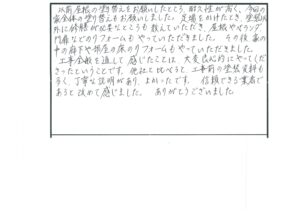 以前屋根の塗り替えをお願いしたところ、耐久性が高く、今回の
家全体の塗り替えもお願いしました。足場をかけたとき、塗装以
外に修繕が必要なところも教えていただき、屋根やベランダ、
門扉などのリフォームもやっていただきました。その後家の
中の廊下や部屋の床のリフォームもやっていただきました。
工事全般を通して感じたことは 大変良心的にやってくだ
さったということです。他社と比べると、工事前の塗装資料も
多く、丁寧な説明があり、よかったです。信頼できる業者で
あると改めて感じました。 ありがとうございました